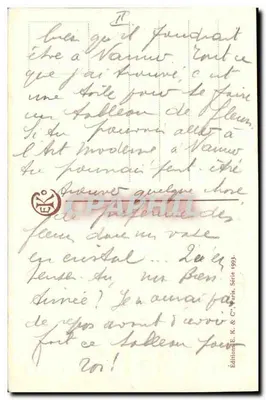 II
bien qu'il faudrait
être à Namur. Tout ce
que j'ai trouvé, c'est
une toile pour te faire
un tableau de fleurs.
Si tu pouvais aller à
l'Art Moderne à Namur
tu pourrais peut-être
trouver quelque chose
des
fleurs dans un vase
en cristal... Qu'en
penses-tu, ma Bien
Aimée? Je n'aurai pas
de repos avant d'avoir
fait ce tableau pour
toi!
Édition E. K. & Cie, Paris, Série 1993.